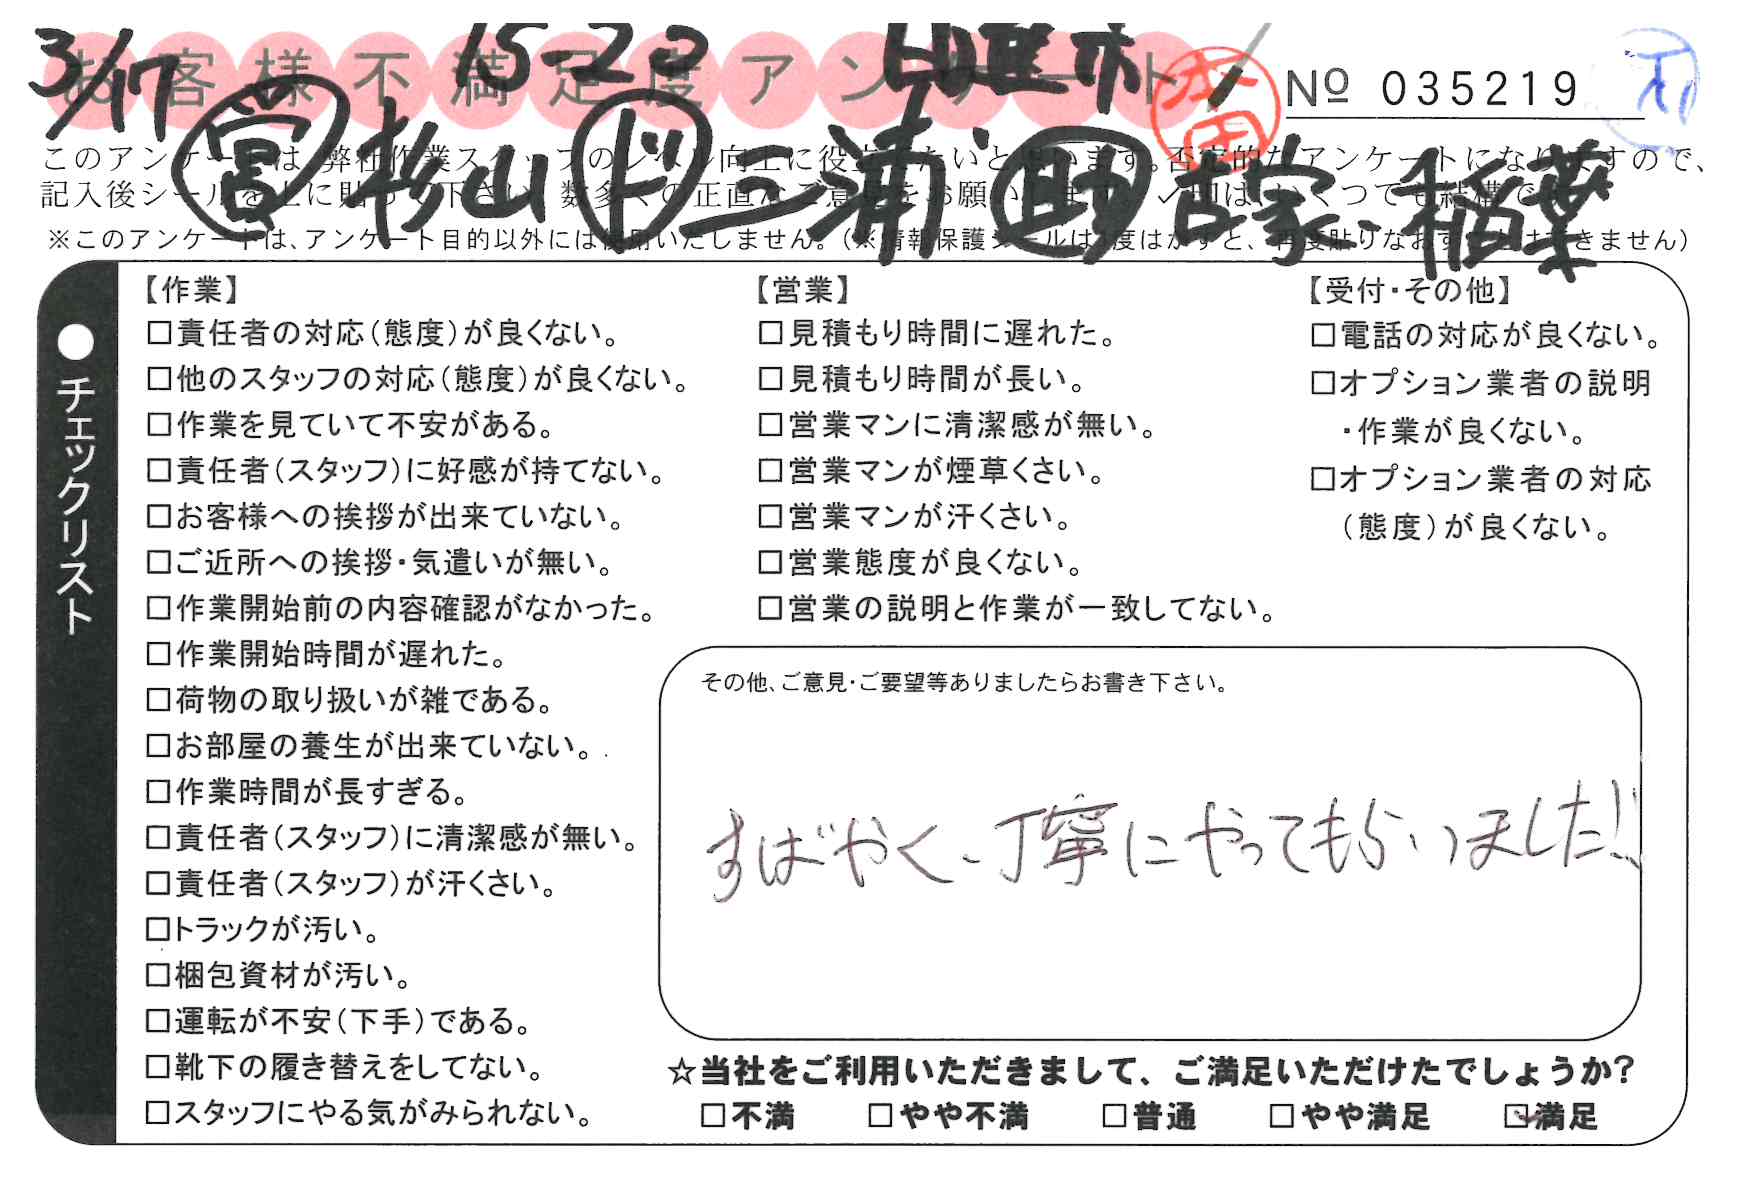 3/17 15-23
お客様不満足度アンケート
本田
№ 035219
営 杉山 ド 三浦 助 吉家、稲葉
このアンケートは、弊社作業スタッフのレベル向上に役立てたいと思います。否定的なアンケートになりますので、
記入後シールを上に貼って下さい。数多くの正直なご意見をお願いします。✓印は、いくつでも結構です。
※このアンケートは、アンケート目的以外には使用いたしません。(※情報保護シールは1度はがすと、再度貼りなおすことはできません)
●チェックリスト
【作業】
□責任者の対応(態度)が良くない。
□他のスタッフの対応(態度)が良くない。
□作業を見ていて不安がある。
□責任者(スタッフ)に好感が持てない。
□お客様への挨拶が出来ていない。
□ご近所への挨拶・気遣いが無い。
□作業開始前の内容確認がなかった。
□作業開始時間が遅れた。
□荷物の取り扱いが雑である。
□お部屋の養生が出来ていない。
□作業時間が長すぎる。
□責任者(スタッフ)に清潔感が無い。
□責任者(スタッフ)が汗くさい。
□トラックが汚い。
□梱包資材が汚い。
□運転が不安(下手)である。
□靴下の履き替えをしてない。
□スタッフにやる気がみられない。
【営業】
□見積もり時間に遅れた。
□見積もり時間が長い。
□営業マンに清潔感が無い。
□営業マンが煙草くさい。
□営業マンが汗くさい。
□営業態度が良くない。
□営業の説明と作業が一致してない。
【受付・その他】
□電話の対応が良くない。
□オプション業者の説明
・作業が良くない。
□オプション業者の対応
(態度)が良くない。
その他、ご意見・ご要望等ありましたらお書き下さい。
すばやく、丁寧にやってもらいました!!
☆当社をご利用いただきまして、ご満足いただけたでしょうか?
□不満 □やや不満 □普通 □やや満足 ☑満足